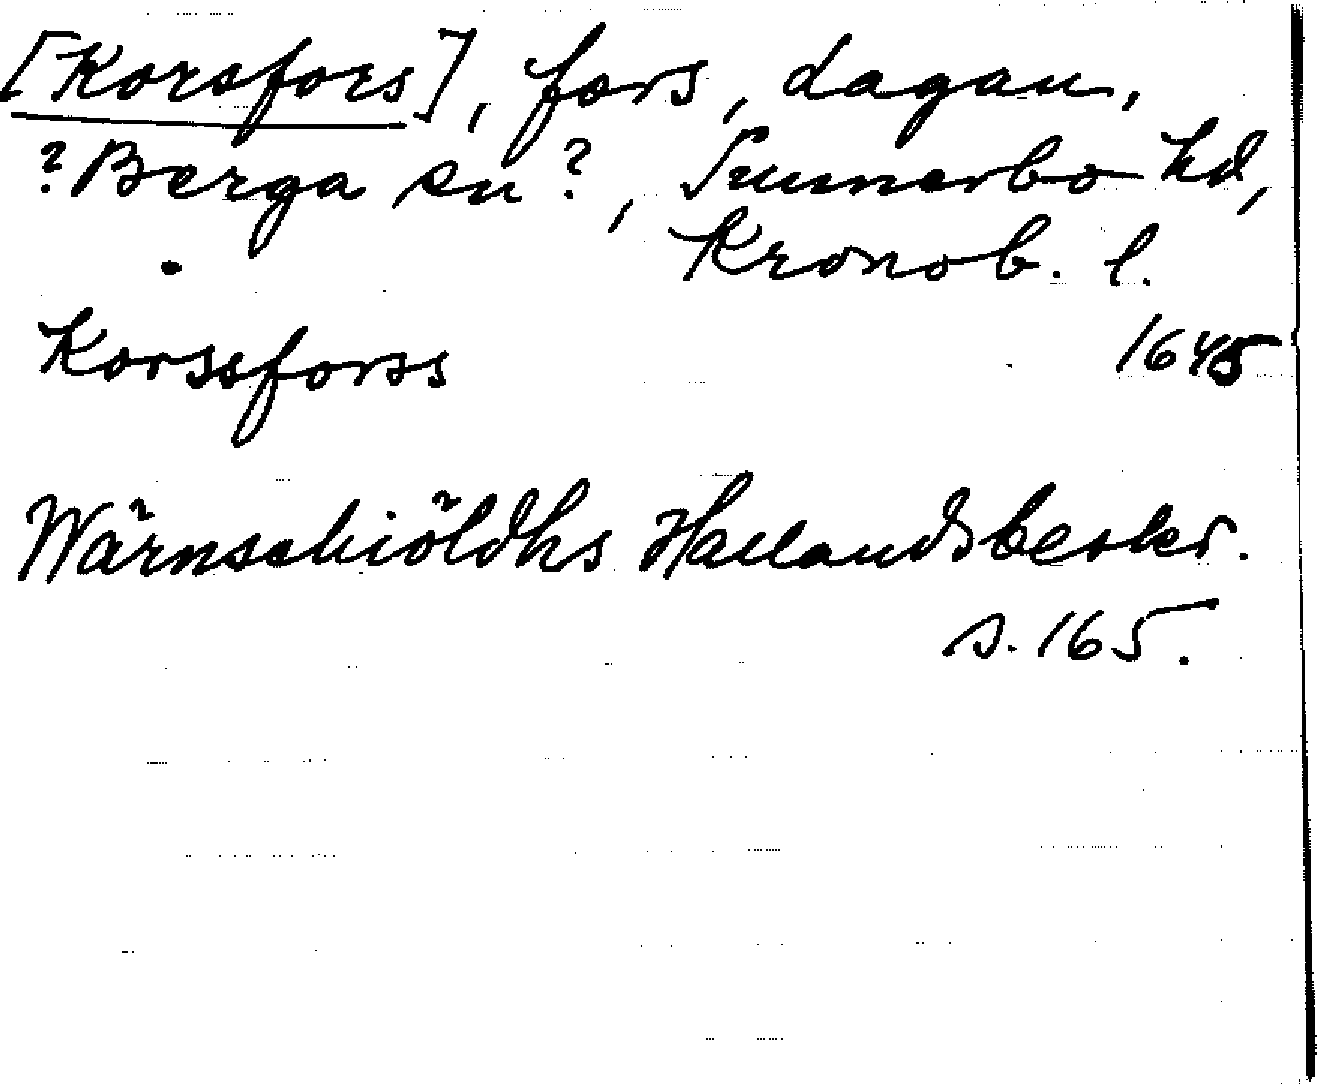 [Korsfors], fors, Lagan,
?Berga sn?, Sunnerbo hd,
Kronob. l.
Korssforss 1645
Wärnschiöldhs Hallandsbeskr.
s. 165.